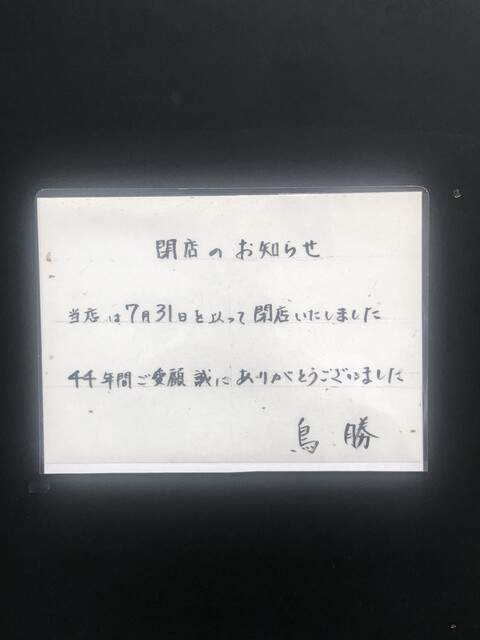 閉店のお知らせ
当店は7月31日を以って閉店いたしました
44年間ご愛顧誠にありがとうございました
鳥勝